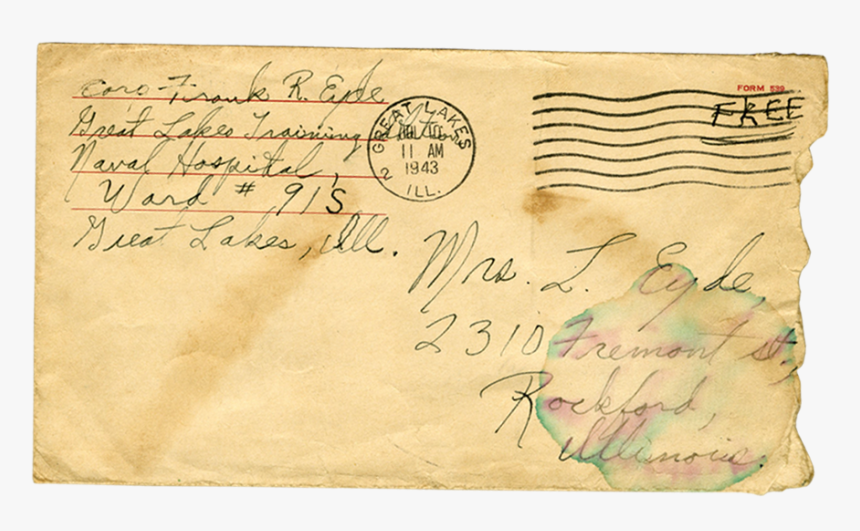 Frank R. Eyde
Great Lakes Training
Naval Hospital,
Ward # 91S
Great Lakes, Ill.
GREAT LAKES
11 AM
1943
2
ILL.
FORM 539
FREE
Mrs. L. Eyde,
2310 Fremont St.,
Rockford,
Illinois.